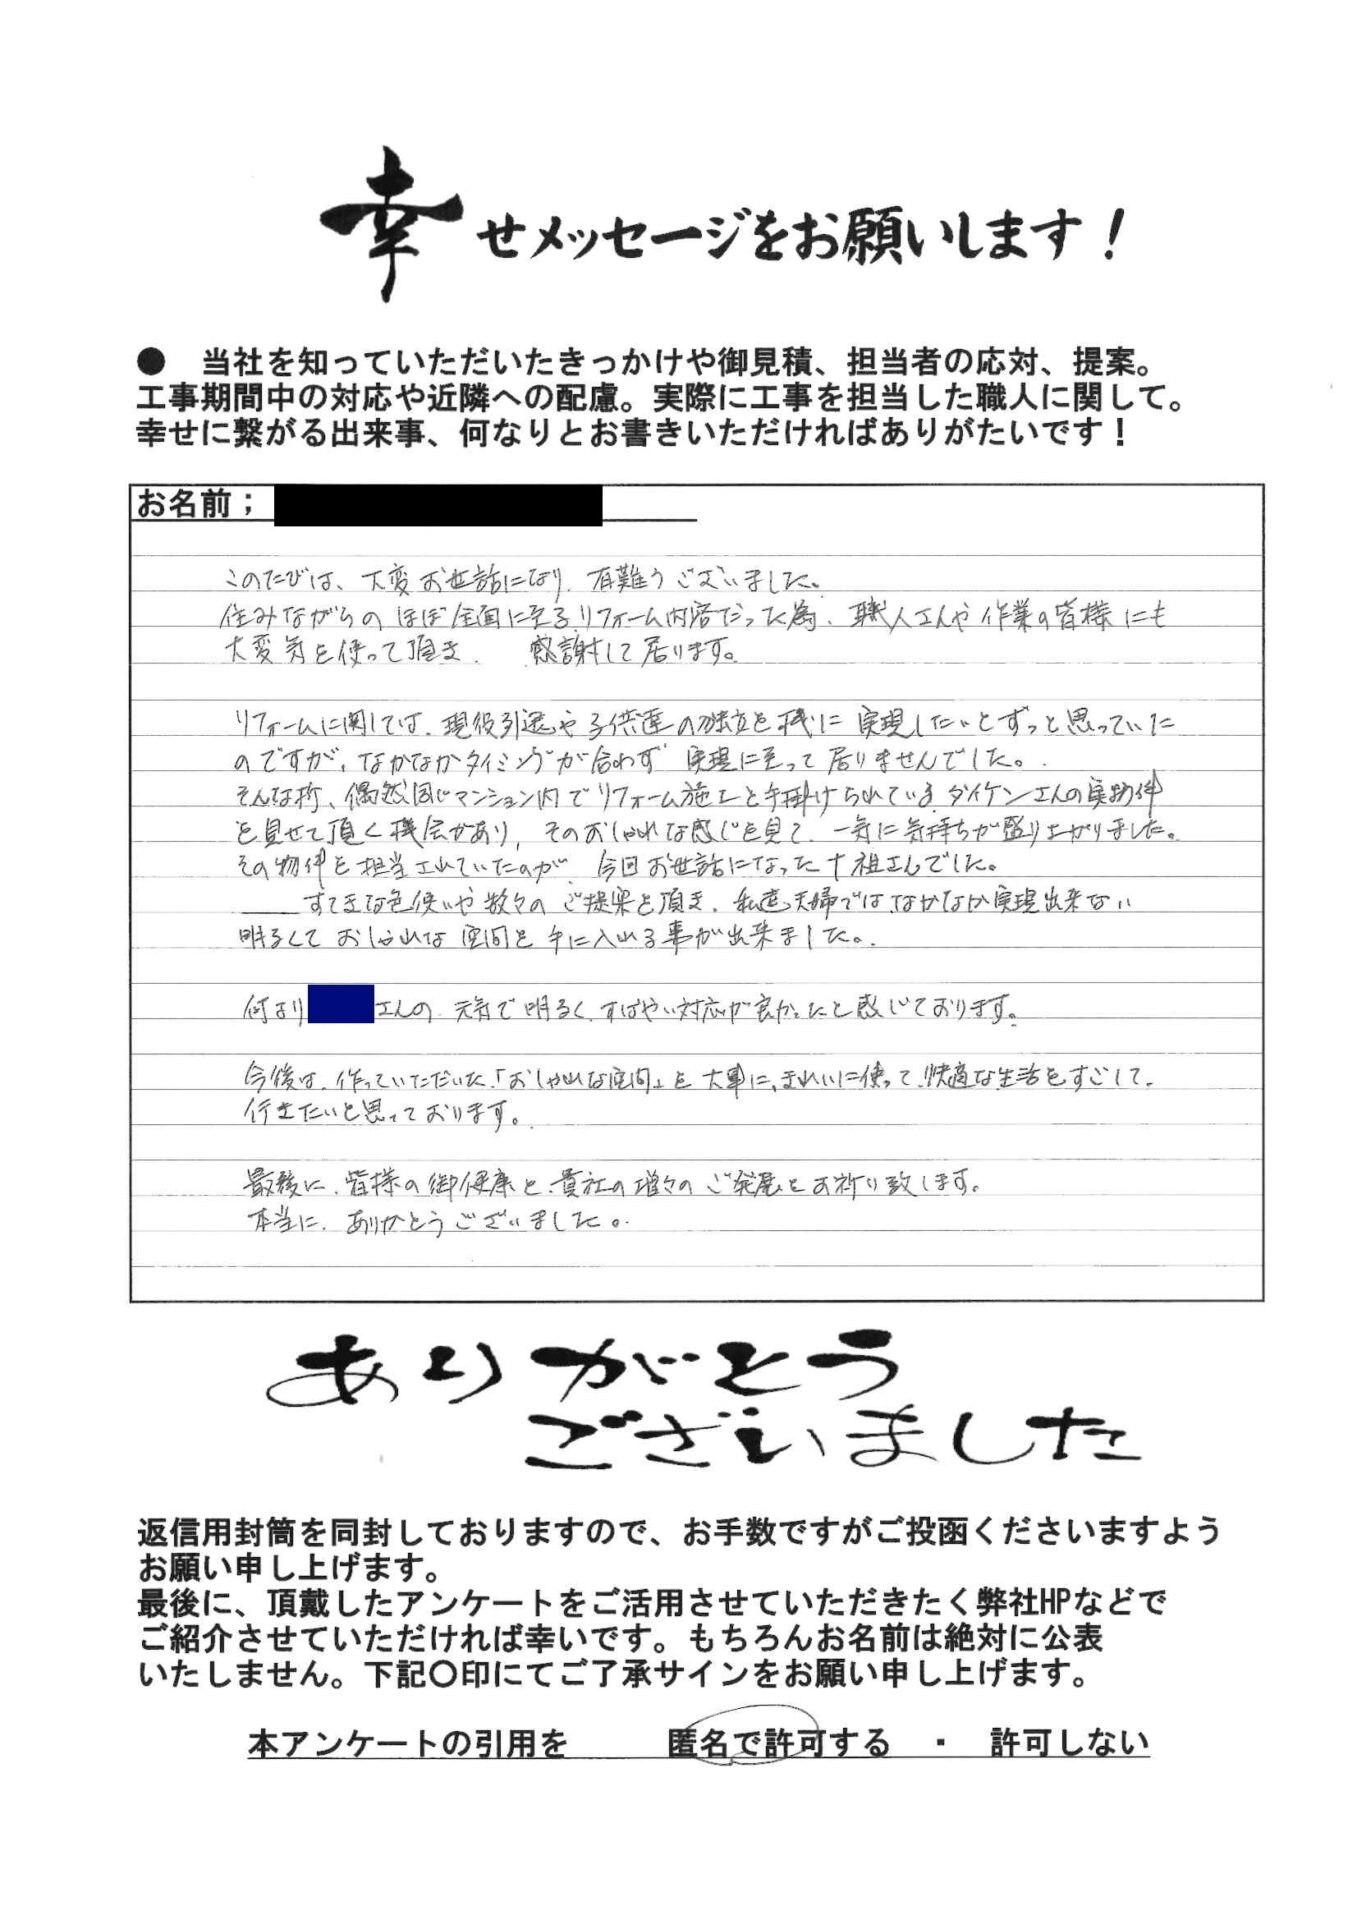 幸せメッセージをお願いします！
● 当社を知っていただいたきっかけや御見積、担当者の応対、提案。
工事期間中の対応や近隣への配慮。実際に工事を担当した職人に関して。
幸せに繋がる出来事、何なりとお書きいただければありがたいです！
お名前；
このたびは、大変お世話になり、有難うございました。
住みながらの ほぼ全面に至るリフォーム内容だった為、職人さんや作業の皆様にも
大変気を使って頂き、 感謝して居ります。
リフォームに関しては、現役引退や子供達の独立を機に 実現したいとずっと思っていた
のですが、なかなかタイミングが合わず 実現に至って居りませんでした。
そんな折、偶然同じマンション内でリフォーム施工を手掛けられている、ダイケンさんの実物件
を見せて頂く機会があり、そのおしゃれな感じを見て、一気に気持ちが盛り上がりました。
その物件を担当されていたのが 今回お世話になった十祖さんでした。
すてきな色使いや数々の ご提案を頂き、私達夫婦では、なかなか実現出来ない
明るくて おしゃれな空間を 手に入れる事が出来ました。
何より さんの 元気で明るく、すばやい対応が良かったと感じております。
今後は、作っていただいた「おしゃれな空間」を 大事に、きれいに使って、快適な生活をすごして、
行きたいと思っております。
最後に、皆様の御健康と、貴社の増々のご発展をお祈り致します。
本当に、ありがとうございました。
ありがとう
ございました
返信用封筒を同封しておりますので、お手数ですがご投函くださいますよう
お願い申し上げます。
最後に、頂戴したアンケートをご活用させていただきたく弊社HPなどで
ご紹介させていただければ幸いです。もちろんお名前は絶対に公表
いたしません。下記〇印にてご了承サインをお願い申し上げます。
本アンケートの引用を 匿名で許可する ・ 許可しない